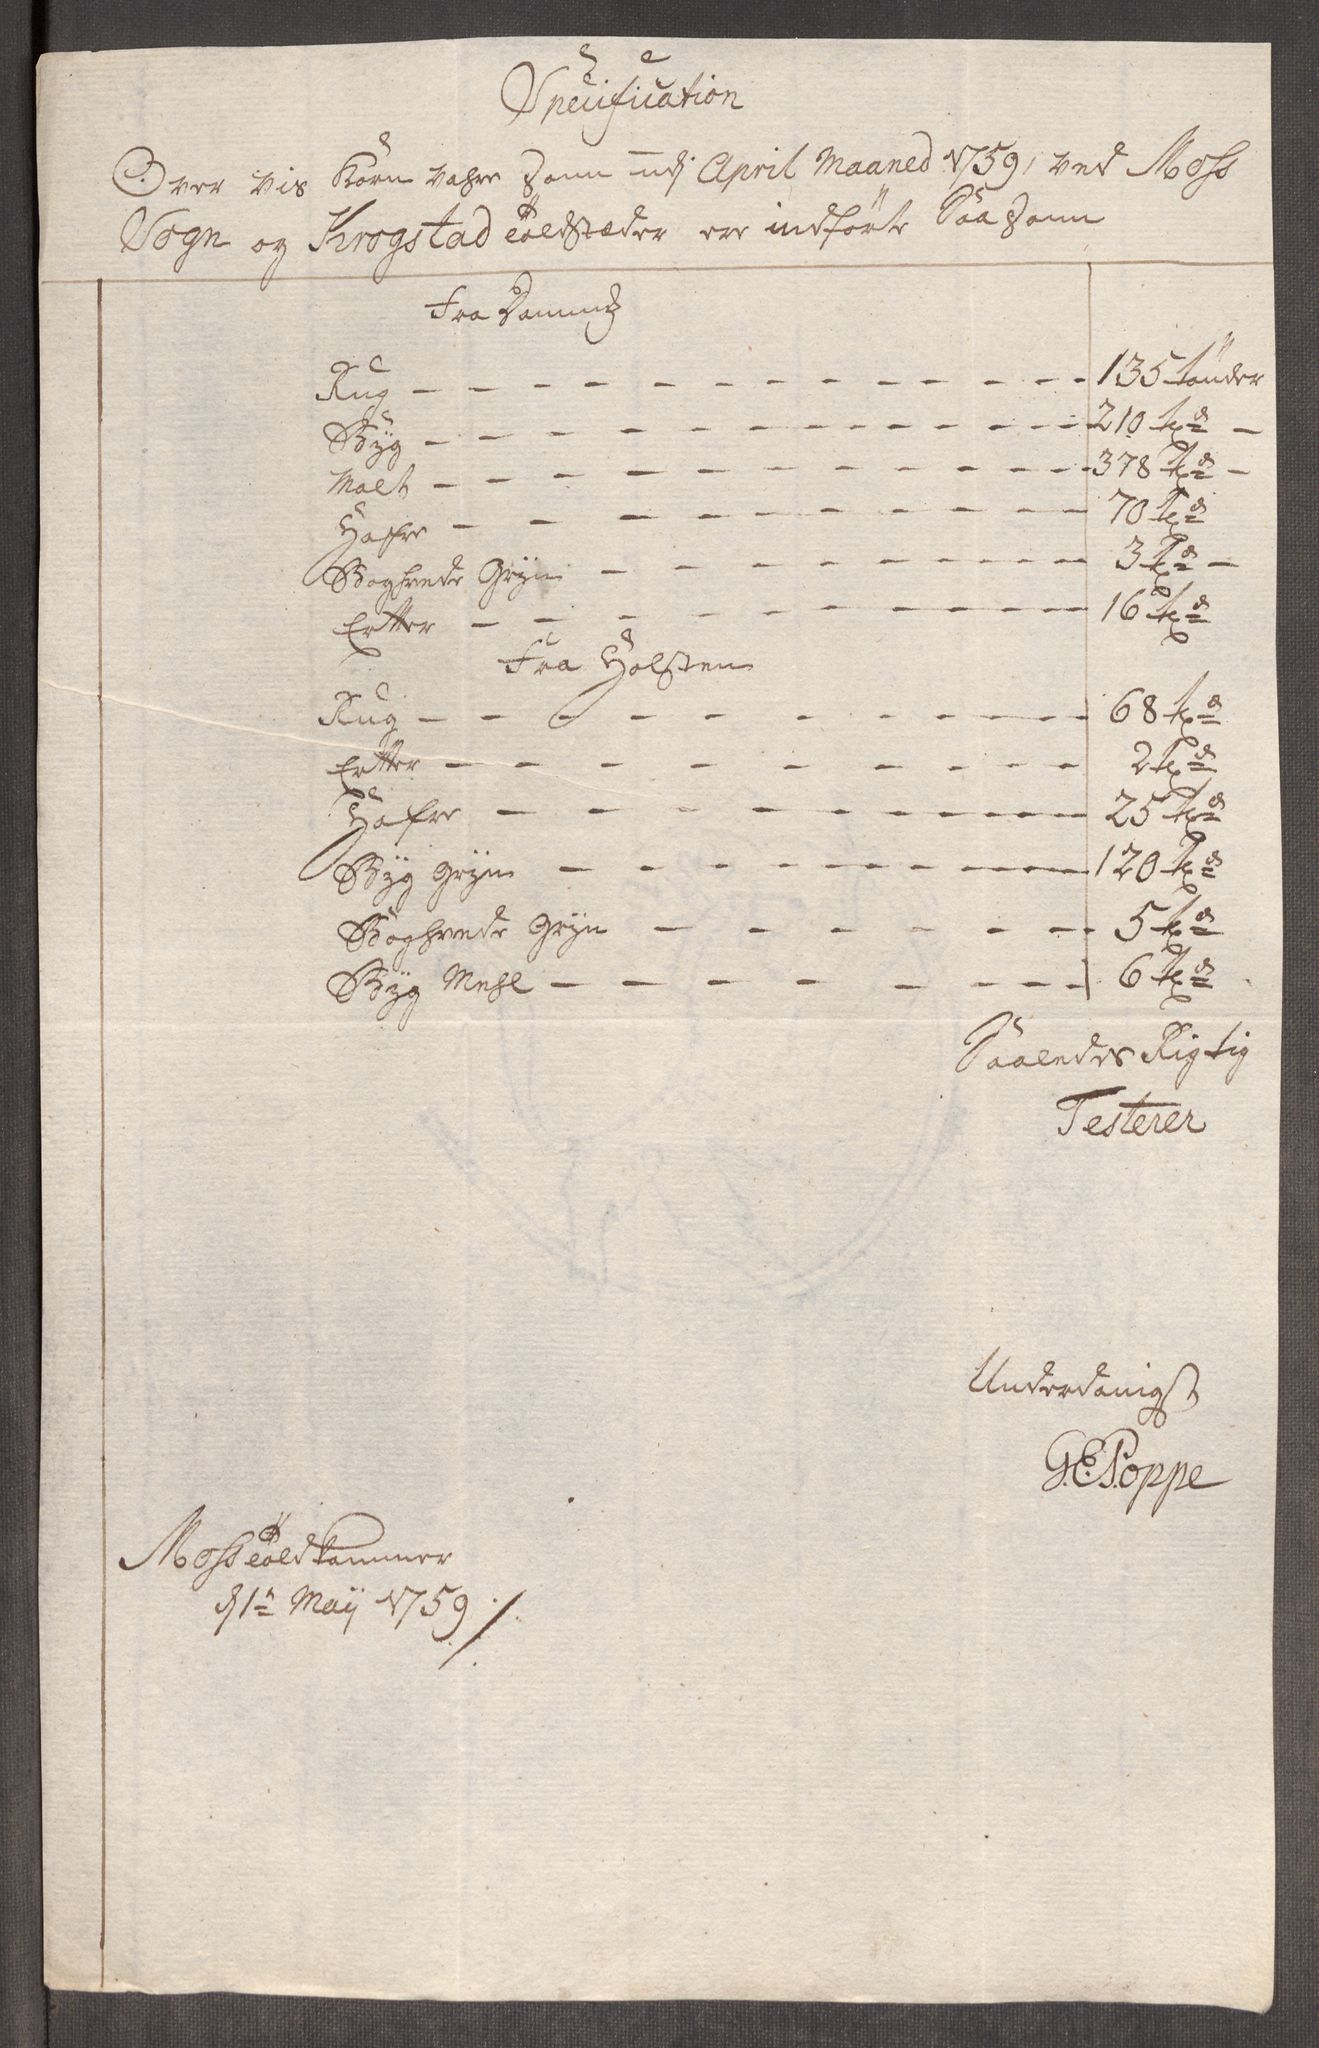 Specification
Over vis Korn vahre som udj April Maaned 1759, ved Moss
Sogn og Krogstad Toldstæder ere indförte Saasom
Fra Danmk
Rug 135 tönder
Byg 210 td
Malt 378 td
Hafre 70 td
Boghvede Gryn 3 td
Ertter 16 td
Fra Holsten
Rug 68 td
Ertter 2 td
Hafre 25 td
Byg Gryn 120 td
Boghvede Gryn 5 td
Byg Mehl 6 td
Saaledes Rigtig
Testerer
Underdanigst
G.E.Poppe
Moss Told kammer
d 1n Maij 1759